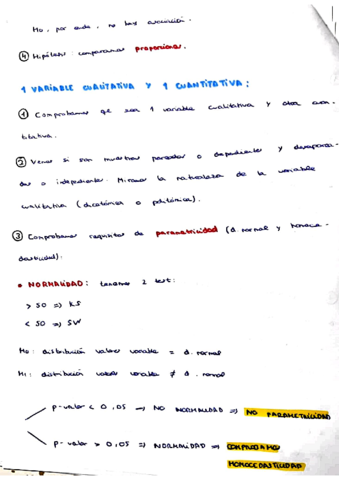 Ho, por ende, no hay asociación.
④ Hipótesis: comparamos proporciones.
1 VARIABLE CUALITATIVA Y 1 CUANTITATIVA:
① Comprobamos que sean 1 variable cualitativa y otra cuan-
titativa.
② Vemos si son muestras pareadas o dependientes y desaparea-
das o independientes. Miramos la naturaleza de la variable
cualitativa (dicotómica o politómica).
③ Comprobamos requisitos de parametricidad (d. normal y homoce-
dasticidad):
• NORMALIDAD: tenemos 2 test:
> 50 => KS
< 50 => SW
Ho: distribución valores variable = d. normal
H1: distribución valores variable ≠ d. normal
p-valor < 0,05 → NO NORMALIDAD => NO PARAMETRICIDAD
p-valor > 0,05 => NORMALIDAD => COMPROBAMOS
HOMOCEDASTICIDAD